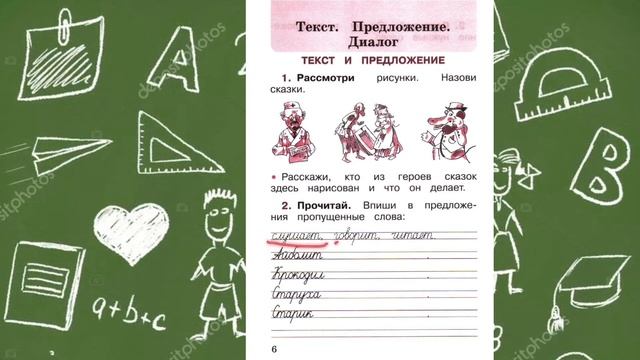 Текст. Предложение.
Диалог
ТЕКСТ И ПРЕДЛОЖЕНИЕ
1. Рассмотри рисунки. Назови
сказки.
• Расскажи, кто из героев сказок
здесь нарисован и что он делает.
2. Прочитай. Впиши в предложе-
ния пропущенные слова:
слушает, говорит, читает.
Айболит .
Крокодил .
Старуха .
Старик .
6
A
B
a+b=c
depositphotos
depositphotos